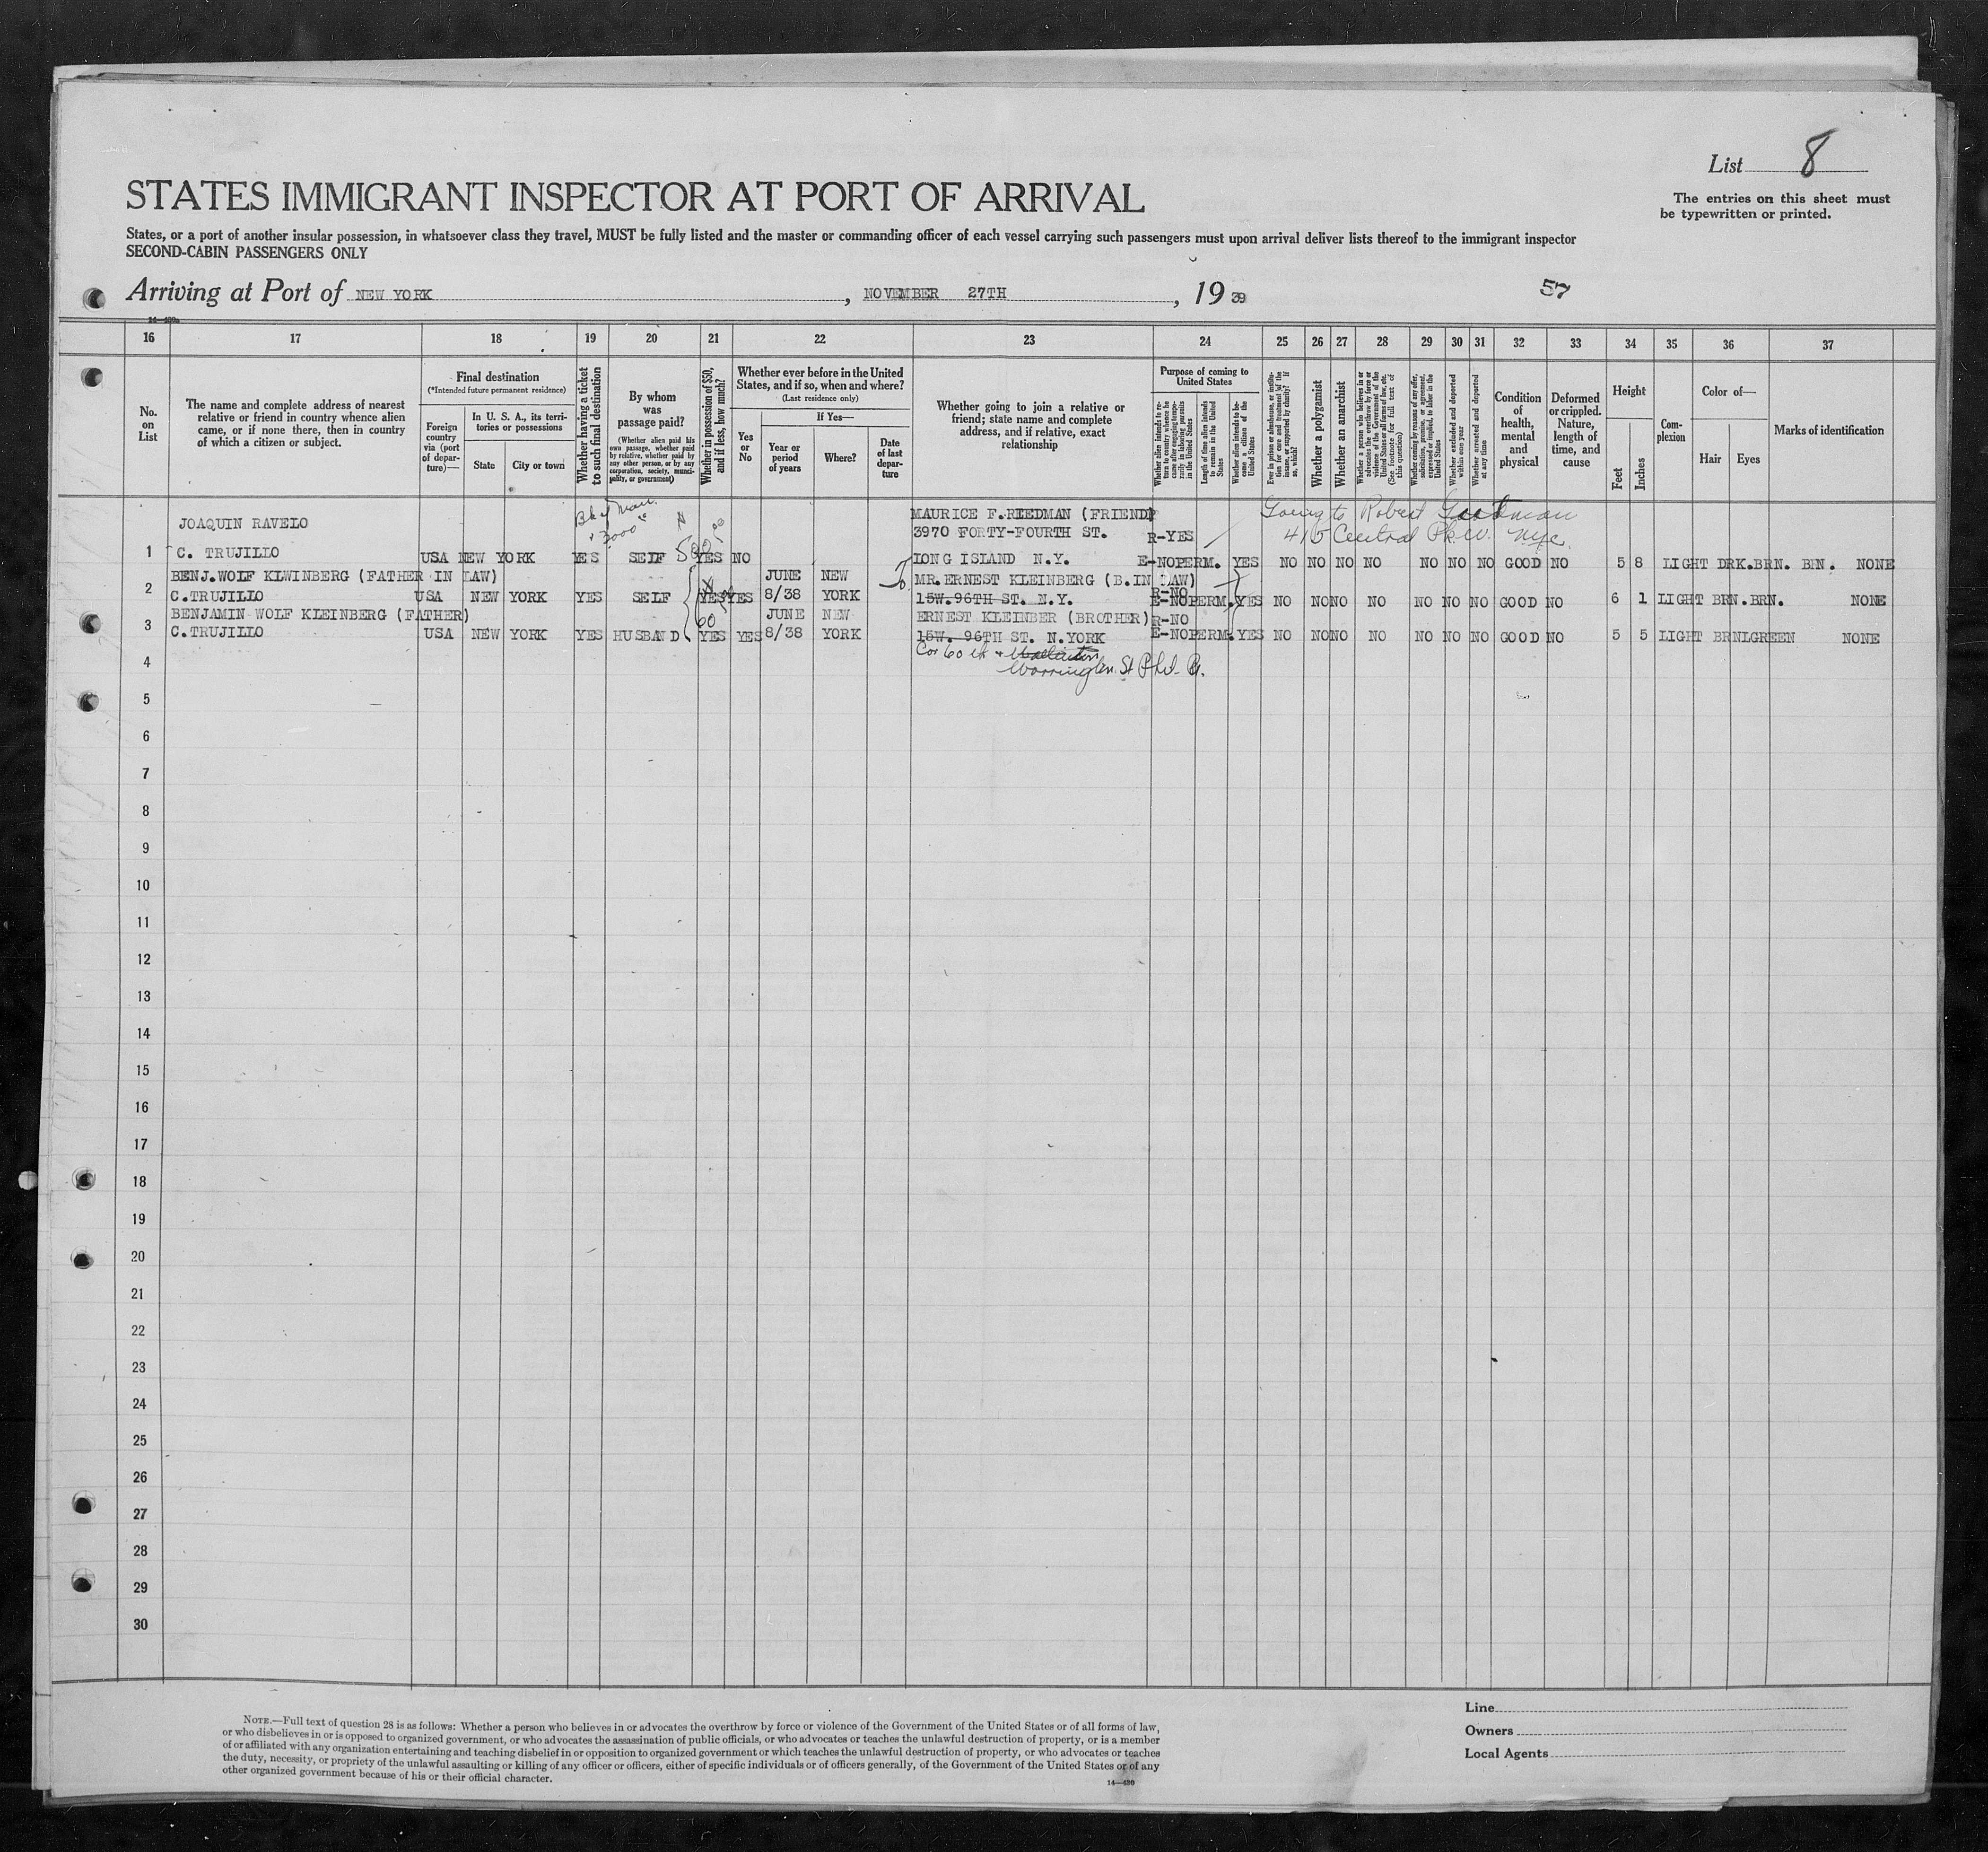 List 8
The entries on this sheet must
be typewritten or printed.
STATES IMMIGRANT INSPECTOR AT PORT OF ARRIVAL
States, or a port of another insular possession, in whatsoever class they travel, MUST be fully listed and the master or commanding officer of each vessel carrying such passengers must upon arrival deliver lists thereof to the immigrant inspector
SECOND-CABIN PASSENGERS ONLY
Arriving at Port of NEW YORK, NOVEMBER 27TH, 19 39
57
16 17 18 19 20 21 22 23 24 25 26 27 28 29 30 31 32 33 34 35 36 37
No. on List
The name and complete address of nearest
relative or friend in country whence alien
came, or if none there, then in country
of which a citizen or subject.
Final destination
(*Intended future permanent residence)
Foreign country via (port of departure)—
In U. S. A., its territories or possessions
State
City or town
Whether having a ticket to such final destination
By whom was passage paid?
(Whether alien paid his own passage, whether paid by relative, whether paid by any other person, or by any corporation, society, municipality, or government)
Whether in possession of $50, and if less, how much?
Whether ever before in the United
States, and if so, when and where?
(Last residence only)
Yes or No
If Yes—
Year or period of years
Where?
Date of last departure
Whether going to join a relative or
friend; state name and complete
address, and if relative, exact
relationship
Purpose of coming to
United States
Whether alien intends to return to country whence he came after engaging temporarily in laboring pursuits in the United States
Length of time alien intends to remain in the United States
Whether alien intends to become a citizen of the United States
Ever in prison or almshouse, or institution for care and treatment of the insane, or supported by charity? If so, which?
Whether a polygamist
Whether an anarchist
Whether a person who believes in or advocates the overthrow by force or violence of the Government of the United States or all forms of law, etc. (See footnote for full text of this question)
Whether coming by reasons of any offer, solicitation, promise, or agreement, expressed or implied, to labor in the United States
Whether excluded and deported within one year
Whether arrested and deported at any time
Condition of health, mental and physical
Deformed or crippled. Nature, length of time, and cause
Height
Feet
Inches
Complexion
Color of—
Hair
Eyes
Marks of identification
3000
500
Going to Robert Goodman
415 Central Pk W. NYC.
JOAQUIN RAVELO MAURICE F.REEDMAN (FRIEND)
3970 FORTY-FOURTH ST. R-YES
1 C. TRUJILLO USA NEW YORK YES SELF YES NO LONG ISLAND N.Y. E-NO PERM. YES NO NO NO NO NO NO NO GOOD NO 5 8 LIGHT DRK.BRN. BRN. NONE
BENJ.WOLF KLWINBERG (FATHER IN LAW) JUNE NEW To MR.ERNEST KLEINBERG (B.IN LAW) R-NO
2 C.TRUJILLO USA NEW YORK YES SELF YES YES 8/38 YORK 15W.96TH ST. N.Y. E-NO PERM. YES NO NO NO NO NO NO NO GOOD NO 6 1 LIGHT BRN.BRN. NONE
60
BENJAMIN WOLF KLEINBERG (FATHER) JUNE NEW ERNEST KLEINBER (BROTHER) R-NO
3 C.TRUJILLO USA NEW YORK YES HUSBAND YES YES 8/38 YORK 15W. 96TH ST. N.YORK E-NO PERM. YES NO NO NO NO NO NO NO GOOD NO 5 5 LIGHT BRNLGREEN NONE
Cor 60th +
Warrington St Phil. Pa.
4
5
6
7
8
9
10
11
12
13
14
15
16
17
18
19
20
21
22
23
24
25
26
27
28
29
30
NOTE.—Full text of question 28 is as follows: Whether a person who believes in or advocates the overthrow by force or violence of the Government of the United States or of all forms of law,
or who disbelieves in or is opposed to organized government, or who advocates the assassination of public officials, or who advocates or teaches the unlawful destruction of property, or is a member
of or affiliated with any organization entertaining and teaching disbelief in or opposition to organized government or which teaches the unlawful destruction of property, or who advocates or teaches
the duty, necessity, or propriety of the unlawful assaulting or killing of any officer or officers, either of specific individuals or of officers generally, of the Government of the United States or of any
other organized government because of his or their official character.
14—430
Line
Owners
Local Agents